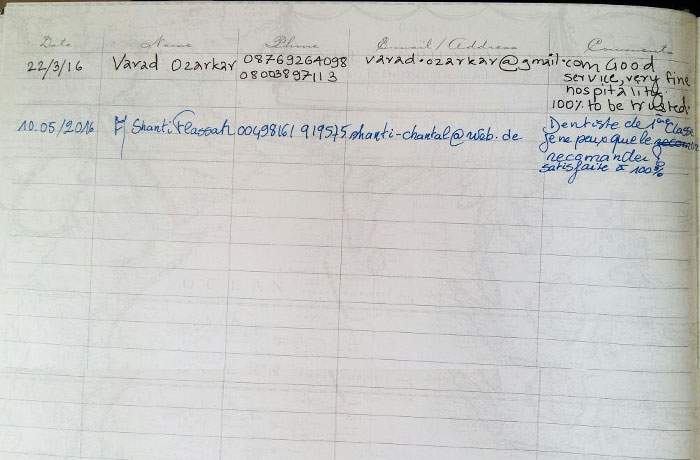 Date Name Phone Email/Address Comments
22/3/16 Varad Ozarkar 08769264098 varad.ozarkar@gmail.com Good
08003897113 service, very fine
hospitality
100% to be trusted.
10.05/2016 Shanti 00498161 919575 shanti-chantal@web.de Dentiste de 1ère Classe
Je ne peux que le
recomander!
satisfaite à 100%
OCEAN